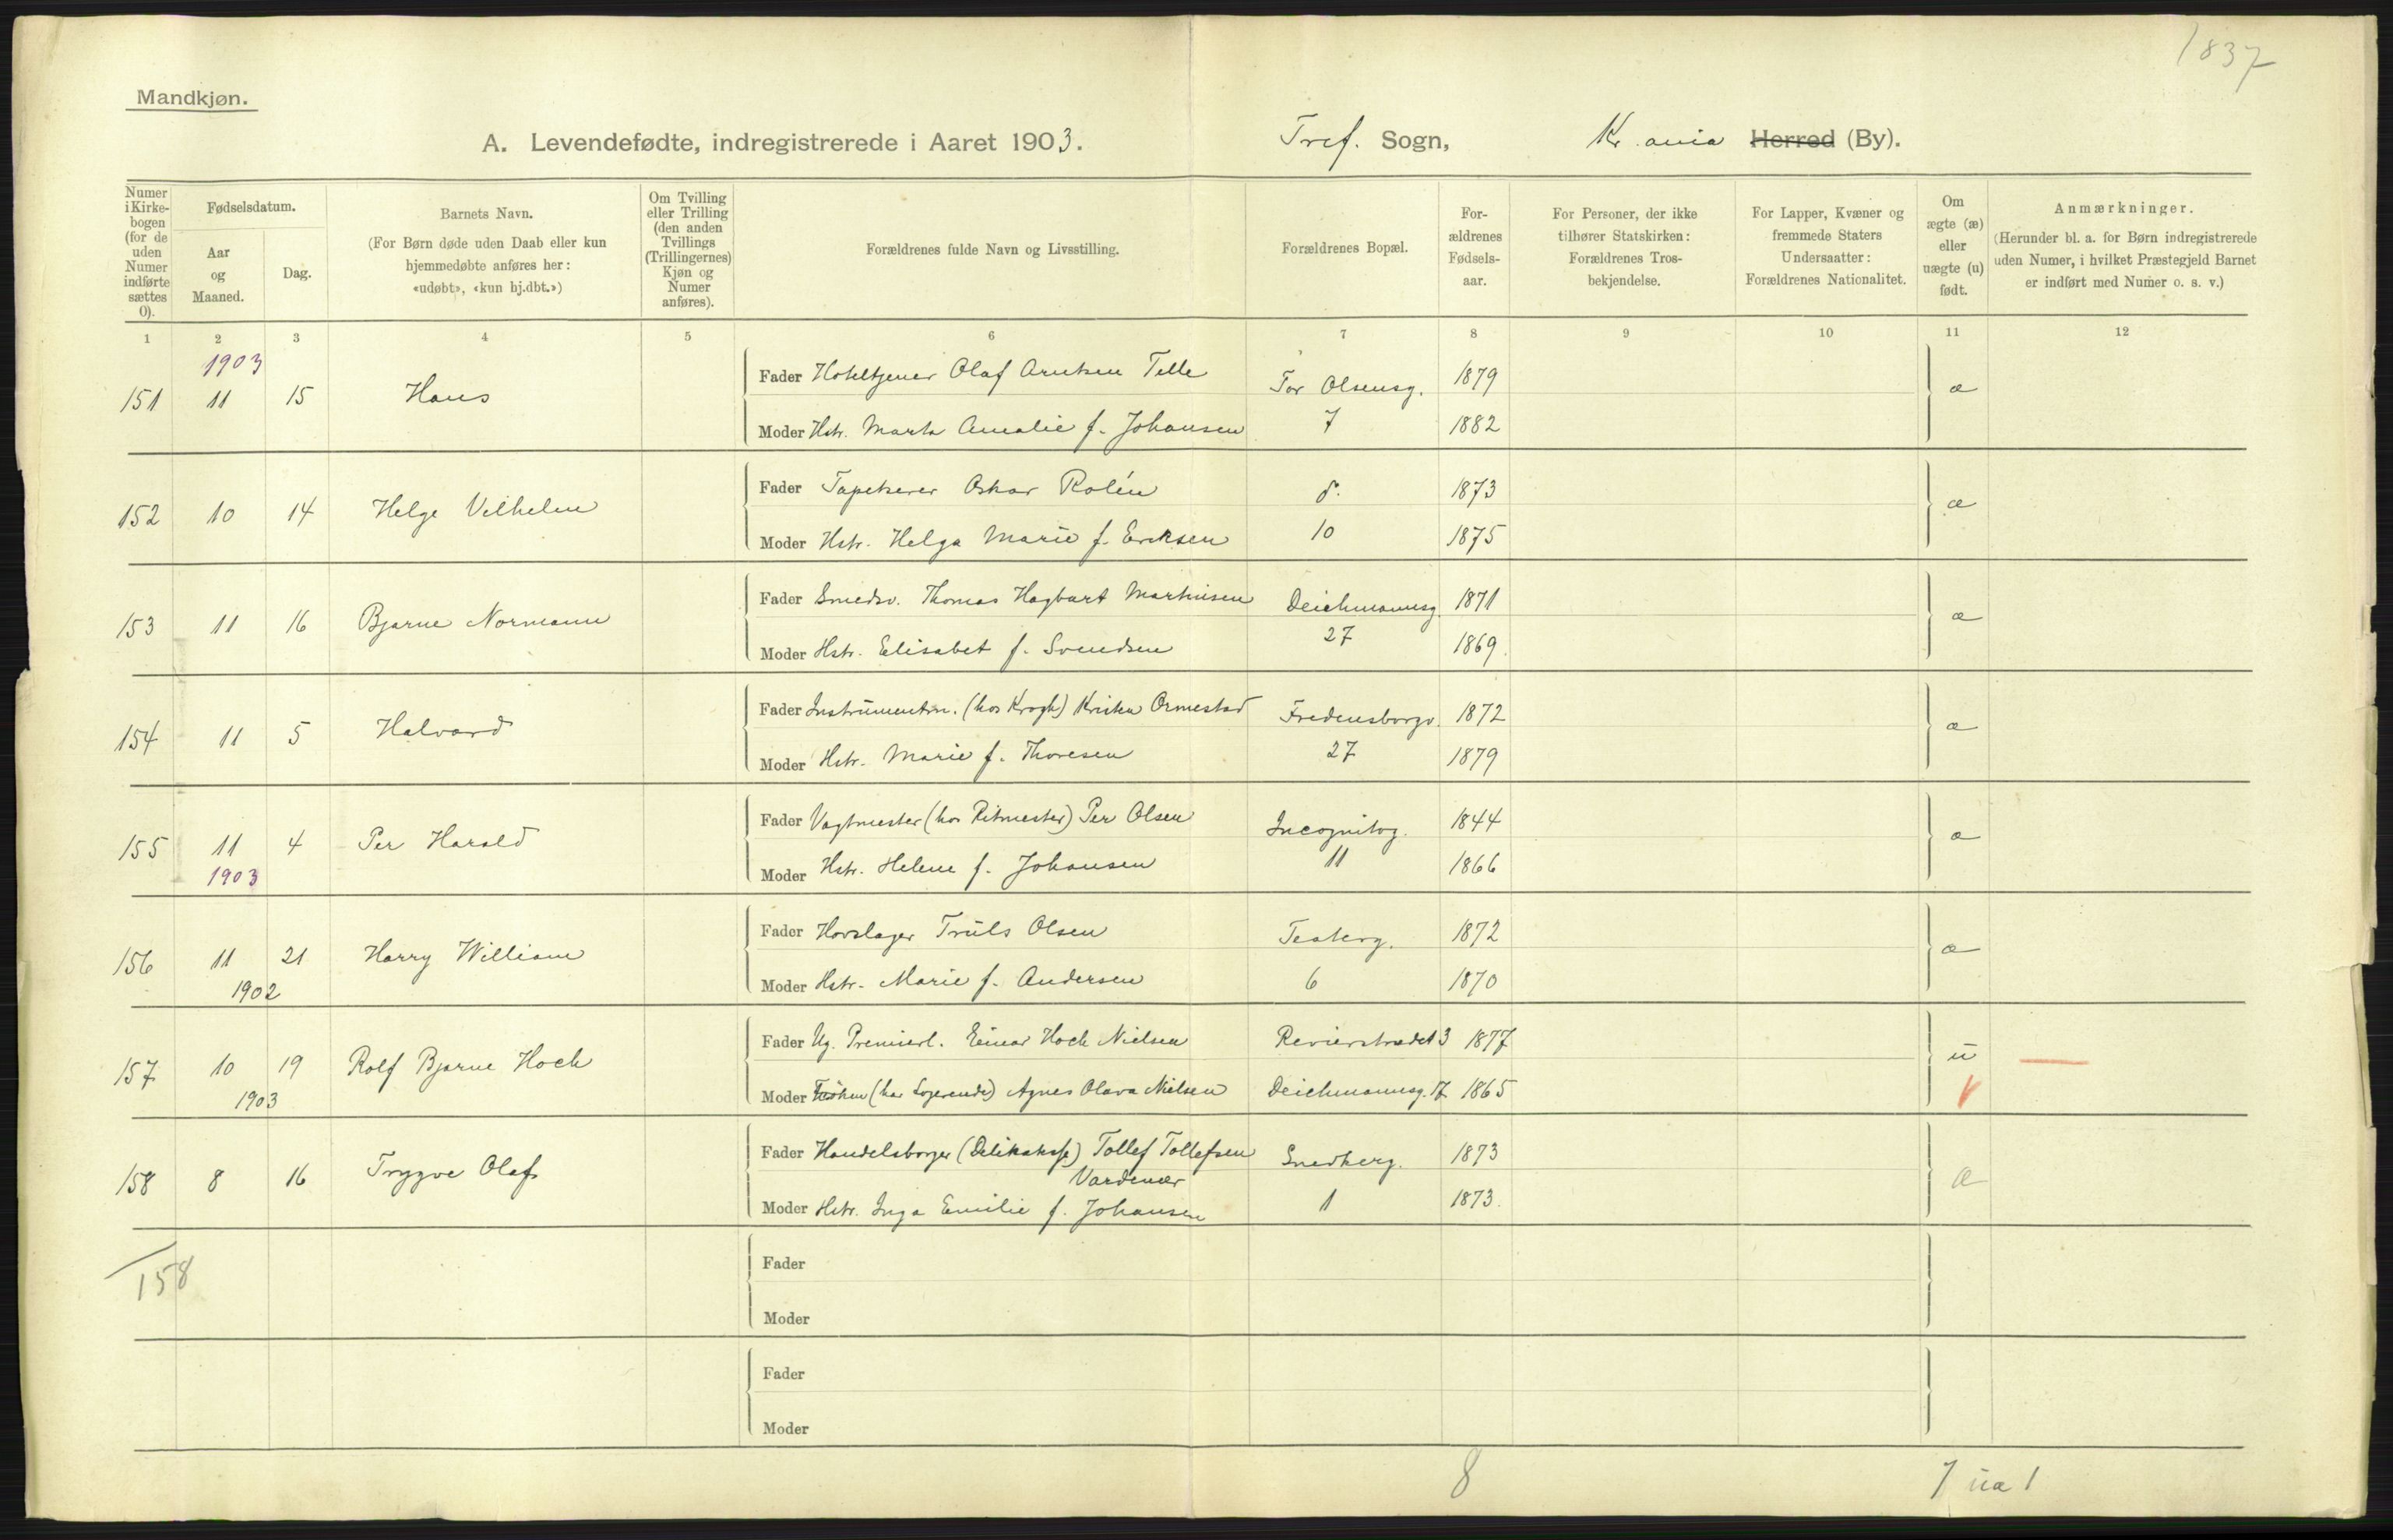 1837
Mandkjøn.
A. Levendefødte, indregistrerede i Aaret 1903. Tref. Sogn, Kr.ania Herred (By).
Numer i Kirkebogen (for de uden Numer indførte sættes 0).
Fødselsdatum.
Aar og Maaned.
Dag.
Barnets Navn.
(For Børn døde uden Daab eller kun hjemmedøbte anføres her: «udøbt», «kun hj.dbt.»)
Om Tvilling eller Trilling (den anden Tvillings (Trillingernes) Kjøn og Numer anføres).
Forældrenes fulde Navn og Livsstilling.
Forældrenes Bopæl.
Forældrenes Fødselsaar.
For Personer, der ikke tilhører Statskirken: Forældrenes Trosbekjendelse.
For Lapper, Kvæner og fremmede Staters Undersaatter: Forældrenes Nationalitet.
Om ægte (æ) eller uægte (u) født.
Anmærkninger.
(Herunder bl. a. for Børn indregistrerede uden Numer, i hvilket Præstegjeld Barnet er indført med Numer o. s. v.)
1 2 3 4 5 6 7 8 9 10 11 12
1903
151 11 15 Hans Fader Hoteltjener Olaf Arntsen Telle Tor Olsensg. 1879 æ
Moder Hstr. Marta Amalie f. Johansen 7 1882
152 10 14 Helge Vilhelm Fader Tapetserer Oskar Rolén d. 1873 æ
Moder Hstr. Helga Marie f. Eriksen 10 1875
153 11 16 Bjarne Normann Fader Smedsv. Thomas Hagbart Martinisen Deichmannsg. 1871 æ
Moder Hstr. Elisabet f. Svendsen 27 1869
154 11 5 Halvard Fader Instrumentm. (hos Krogh) Kristen Ormestad Fredensborgv. 1872 æ
Moder Hstr. Marie f. Thoresen 27 1879
155 11 4 Per Harald Fader Vagtmester (hos Ritmester) Per Olsen Incognitog. 1844 æ
1903 Moder Hstr. Helene f. Johansen 11 1866
156 11 21 Harry William Fader Hovslager Truls Olsen Teaterg. 1872 æ
1902 Moder Hstr. Marie f. Andersen 6 1870
157 10 19 Rolf Bjarne Hoch Fader Ug. Premierl. Einar Hoch Nielsen Revierstrædet 3 1877 u
1903 Moder (har Logerende) Agnes Olava Nielsen Deichmannsg. 17 1865
158 8 16 Trygve Olaf Fader Handelsborger (Delikatesse) Tollef Tollefsen Snedkerg. 1873 æ
Vardenær
Moder Hstr. Inga Emilie f. Johansen 1 1873.
158
Fader
Moder
Fader
Moder
8 7 uæ 1